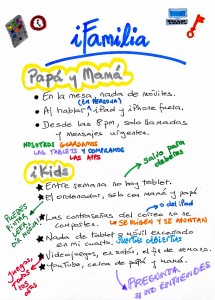 iFamilia
Papá y Mamá
En la mesa, nada de móviles.
(EN PERSONA)
Al hablar, iPad y iPhone fuera.
Desde las 8pm, solo llamadas
y mensajes urgentes.
NOSOTROS GUARDAMOS
LAS TABLETS Y COMPRAMOS
LAS APPS
iKids
salvo para
deberes
Entre semana no hay tablet.
El ordenador, sólo con mamá y papá
y del iPad
Las contraseñas del correo no se
comparten. SE ELIGEN Y SE ANOTAN
Nada de tablet o móvil encerrado
en mi cuarto. PUERTAS ABIERTAS
Videojuegos, en salón, el fin de semana.
YouTube, cerca de papá y mamá.
PUEDES
PINTAR
LEER
Juegos
todos
los
PREGUNTA
SI NO ENTIENDES